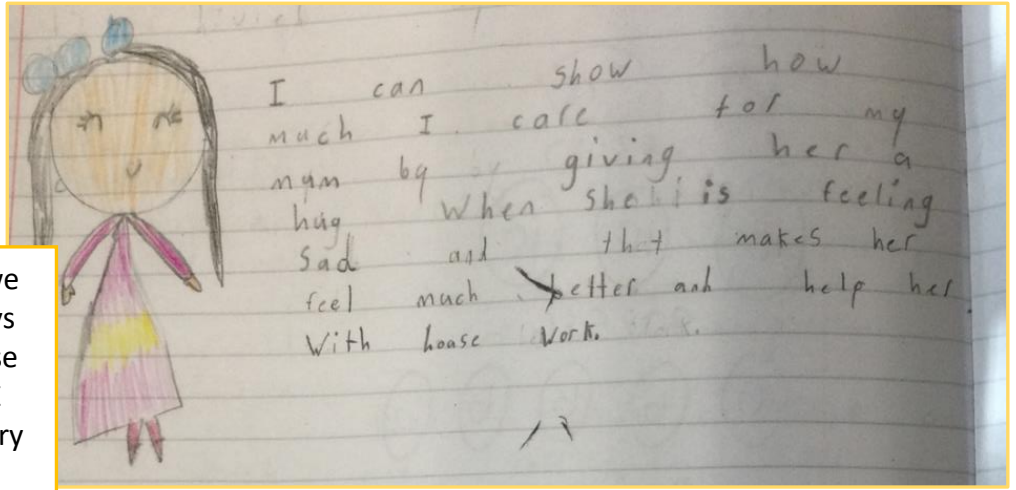 I can show how
much I care for my
mum by giving her a
hug When she is feeling
Sad and that makes her
feel much better and help her
With house Work.
ve
ys
se
ry